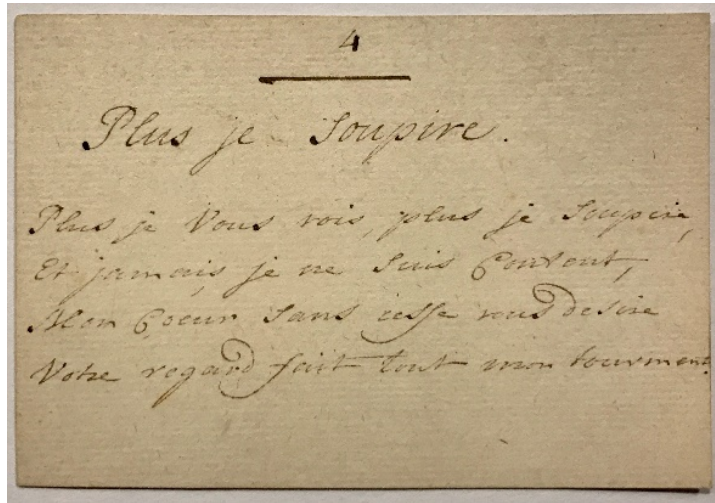 4
Plus je Soupire.
Plus je Vous vois, plus je Soupire,
Et jamais, je ne Suis Content,
Mon Coeur Sans cesse vous desire
Votre regard fait tout mon tourment.